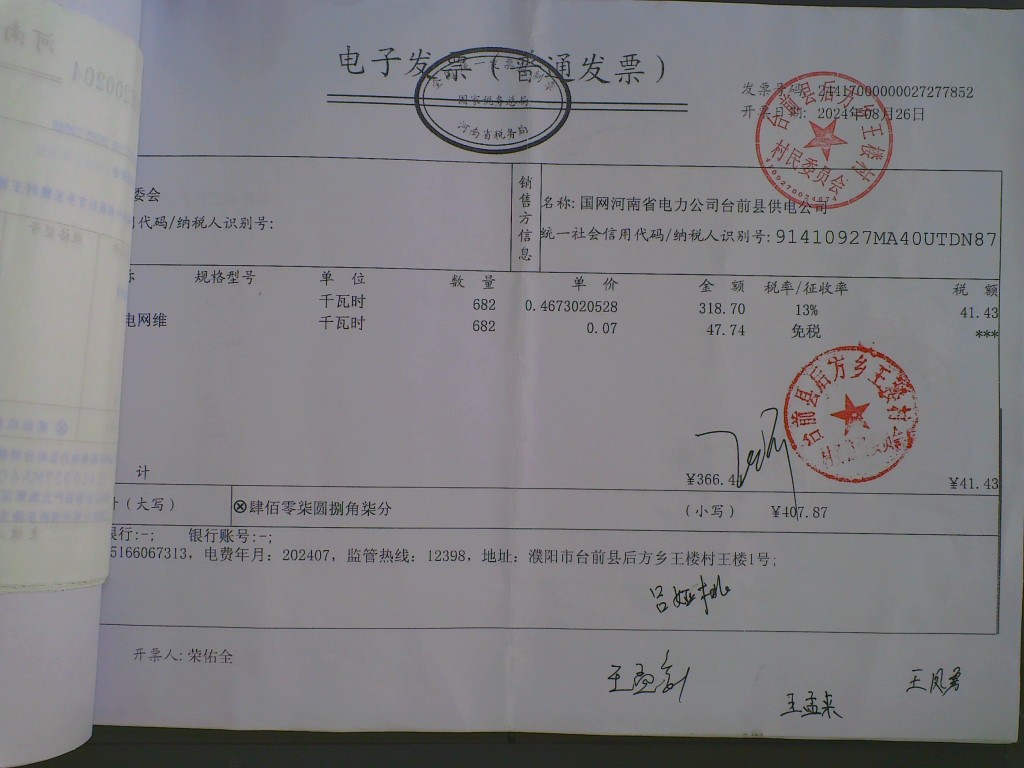 电子发票（普通发票）
国家税务总局
河南省税务局
发票号码: 24417000000027277852
开票日期: 2024年08月26日
台前县后方乡王楼村
村民委员会
委会
代码/纳税人识别号:
销售方信息
名称: 国网河南省电力公司台前县供电公司
统一社会信用代码/纳税人识别号: 91410927MA40UTDN87
规格型号 单 位 数 量 单 价 金 额 税率/征收率 税 额
千瓦时 682 0.4673020528 318.70 13% 41.43
电网维 千瓦时 682 0.07 47.74 免税 ***
台前县后方乡王楼村
计 ¥366.44 ¥41.43
（大写） ⊗肆佰零柒圆捌角柒分 （小写） ¥407.87
银行:-; 银行账号:-;
5166067313, 电费年月: 202407, 监管热线: 12398, 地址: 濮阳市台前县后方乡王楼村王楼1号;
开票人: 荣佑全
王孟来
王凤勇